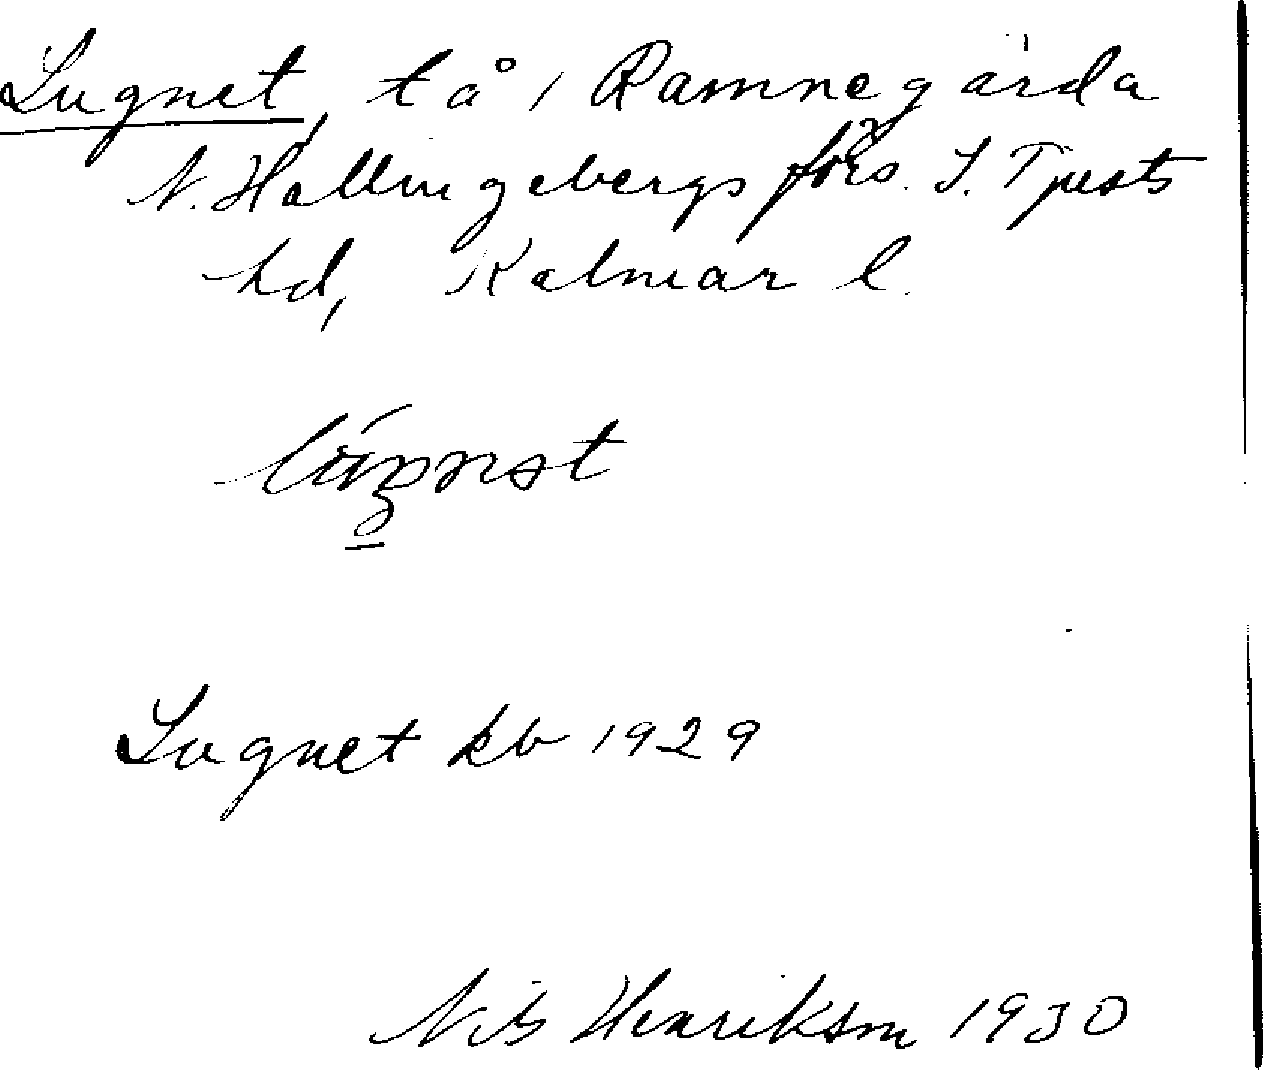 Lugnet, tå i Ramnegärda
N. Hallingebergs förs. S. Tjusts
hd, Kalmar l.
Lugnet kb 1929
Nils Henrikson 1930